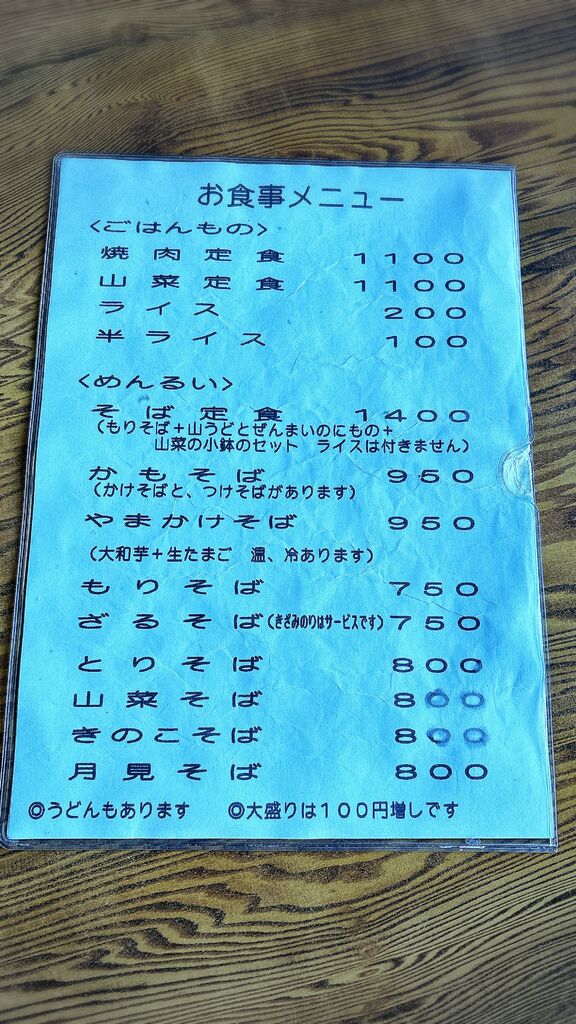 お食事メニュー
<ごはんもの>
焼肉定食 1100
山菜定食 1100
ライス 200
半ライス 100
<めんるい>
そば定食 1400
(もりそば+山うどとぜんまいのにもの+
山菜の小鉢のセット ライスは付きません)
かもそば 950
(かけそばと、つけそばがあります)
やまかけそば 950
(大和芋+生たまご 温、冷あります)
もりそば 750
ざるそば(きざみのりはサービスです) 750
とりそば 800
山菜そば 800
きのこそば 800
月見そば 800
◎うどんもあります ◎大盛りは100円増しです